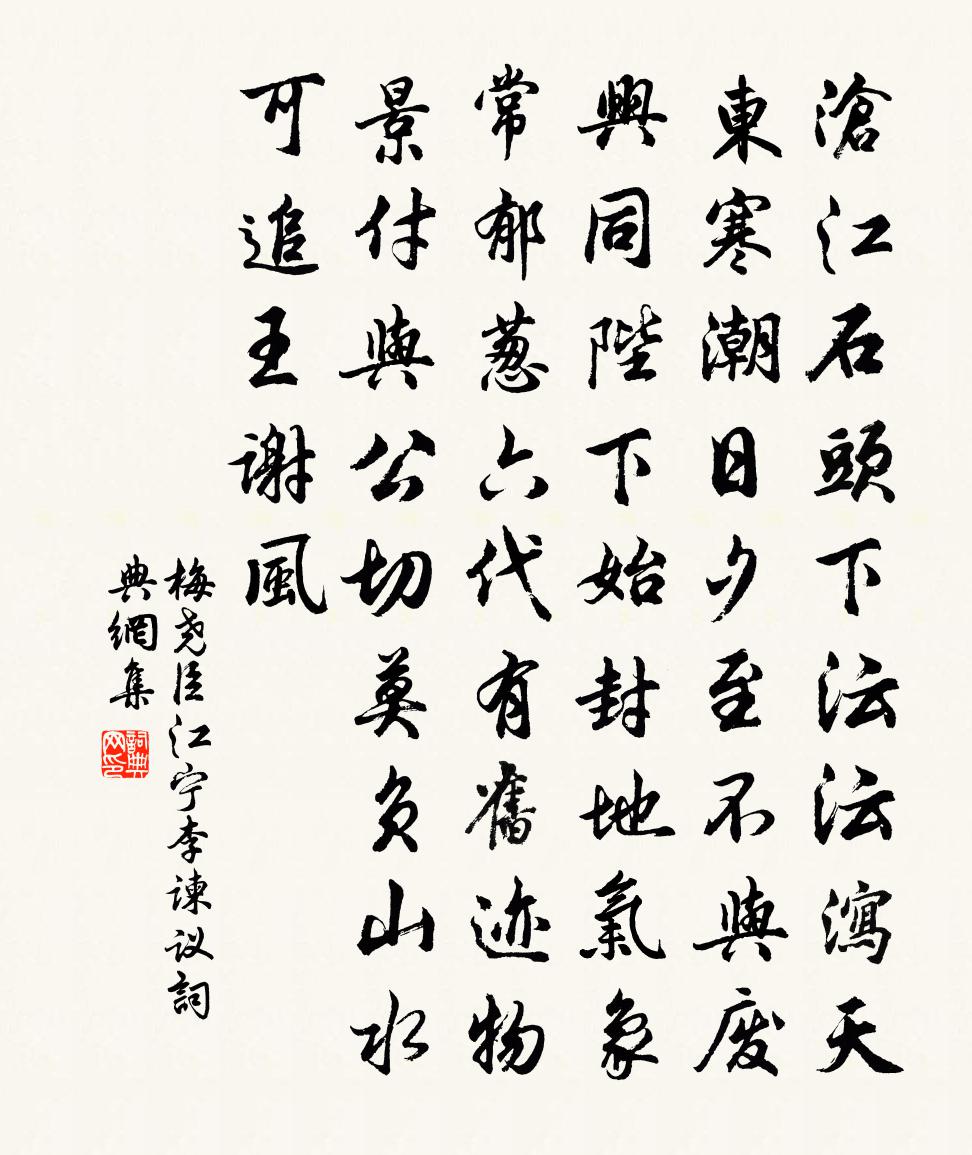 滄江石頭下沄沄瀉天
東寒潮日夕至不與廢
興同陛下始封地氣象
常郁葱六代有舊迹物
景付與公切莫負山水
可追王謝風
梅尧臣江宁李谏议詞
典網集
詞典网印